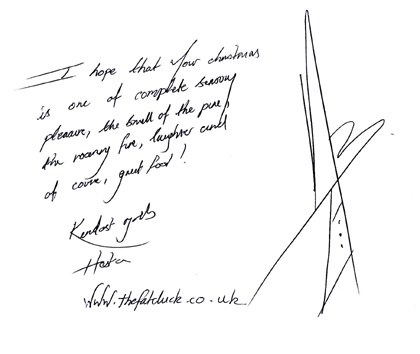 I hope that your christmas
is one of complete sensory
pleasure, the smell of the pine,
the roaring fire, laughter and
of course, great food!
Kindest regards
Heston
www.thefatduck.co.uk